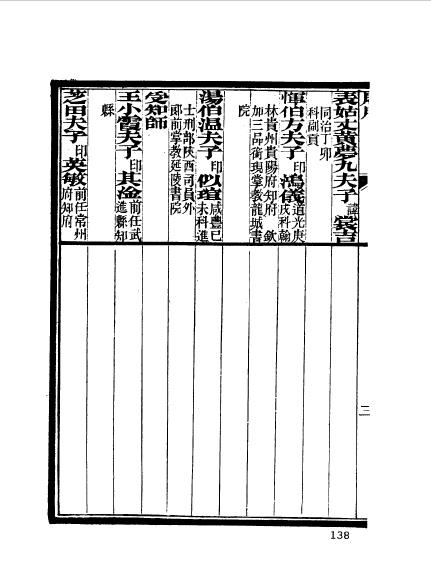 表姑丈黃夢九夫子諱裳吉
同治丁卯
科副貢
惲伯方夫子印鴻儀道光庚
戌科翰
林貴州貴陽府知府 欽
加三品銜現掌教龍城書
院
湯伯溫夫子印似瑄咸豐己
未科進
士刑部陝西司員外
郎前掌教延陵書院
受知師
王小霞夫子印其淦前任武
進縣知
縣
芝田夫子印英敏前任常州
府知府
三
138